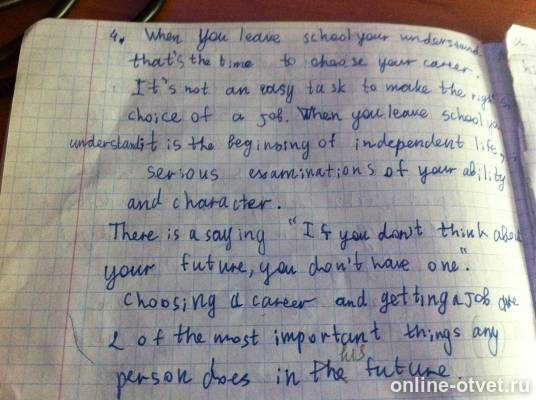 4. When you leave school your understand
that's the time to choose your career.
It's not an easy task to make the right
choice of a job. When you leave school you
understand it is the beginning of independent life,
serious examinations of your ability
and character.
There is a saying "If you don't think about
your future, you don't have one".
Choosing a career and getting a job are
2 of the most important things any
person does in the his future.
online-otvet.ru